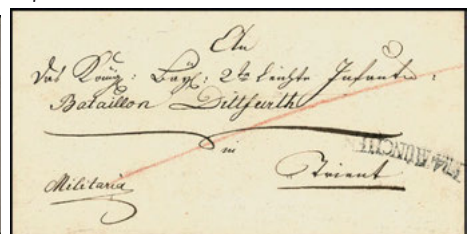 An
das König: Bay: 2te leichte Infanterie:
Bataillon Dittfurth
in
Trient
Militaria
MÜNCHEN